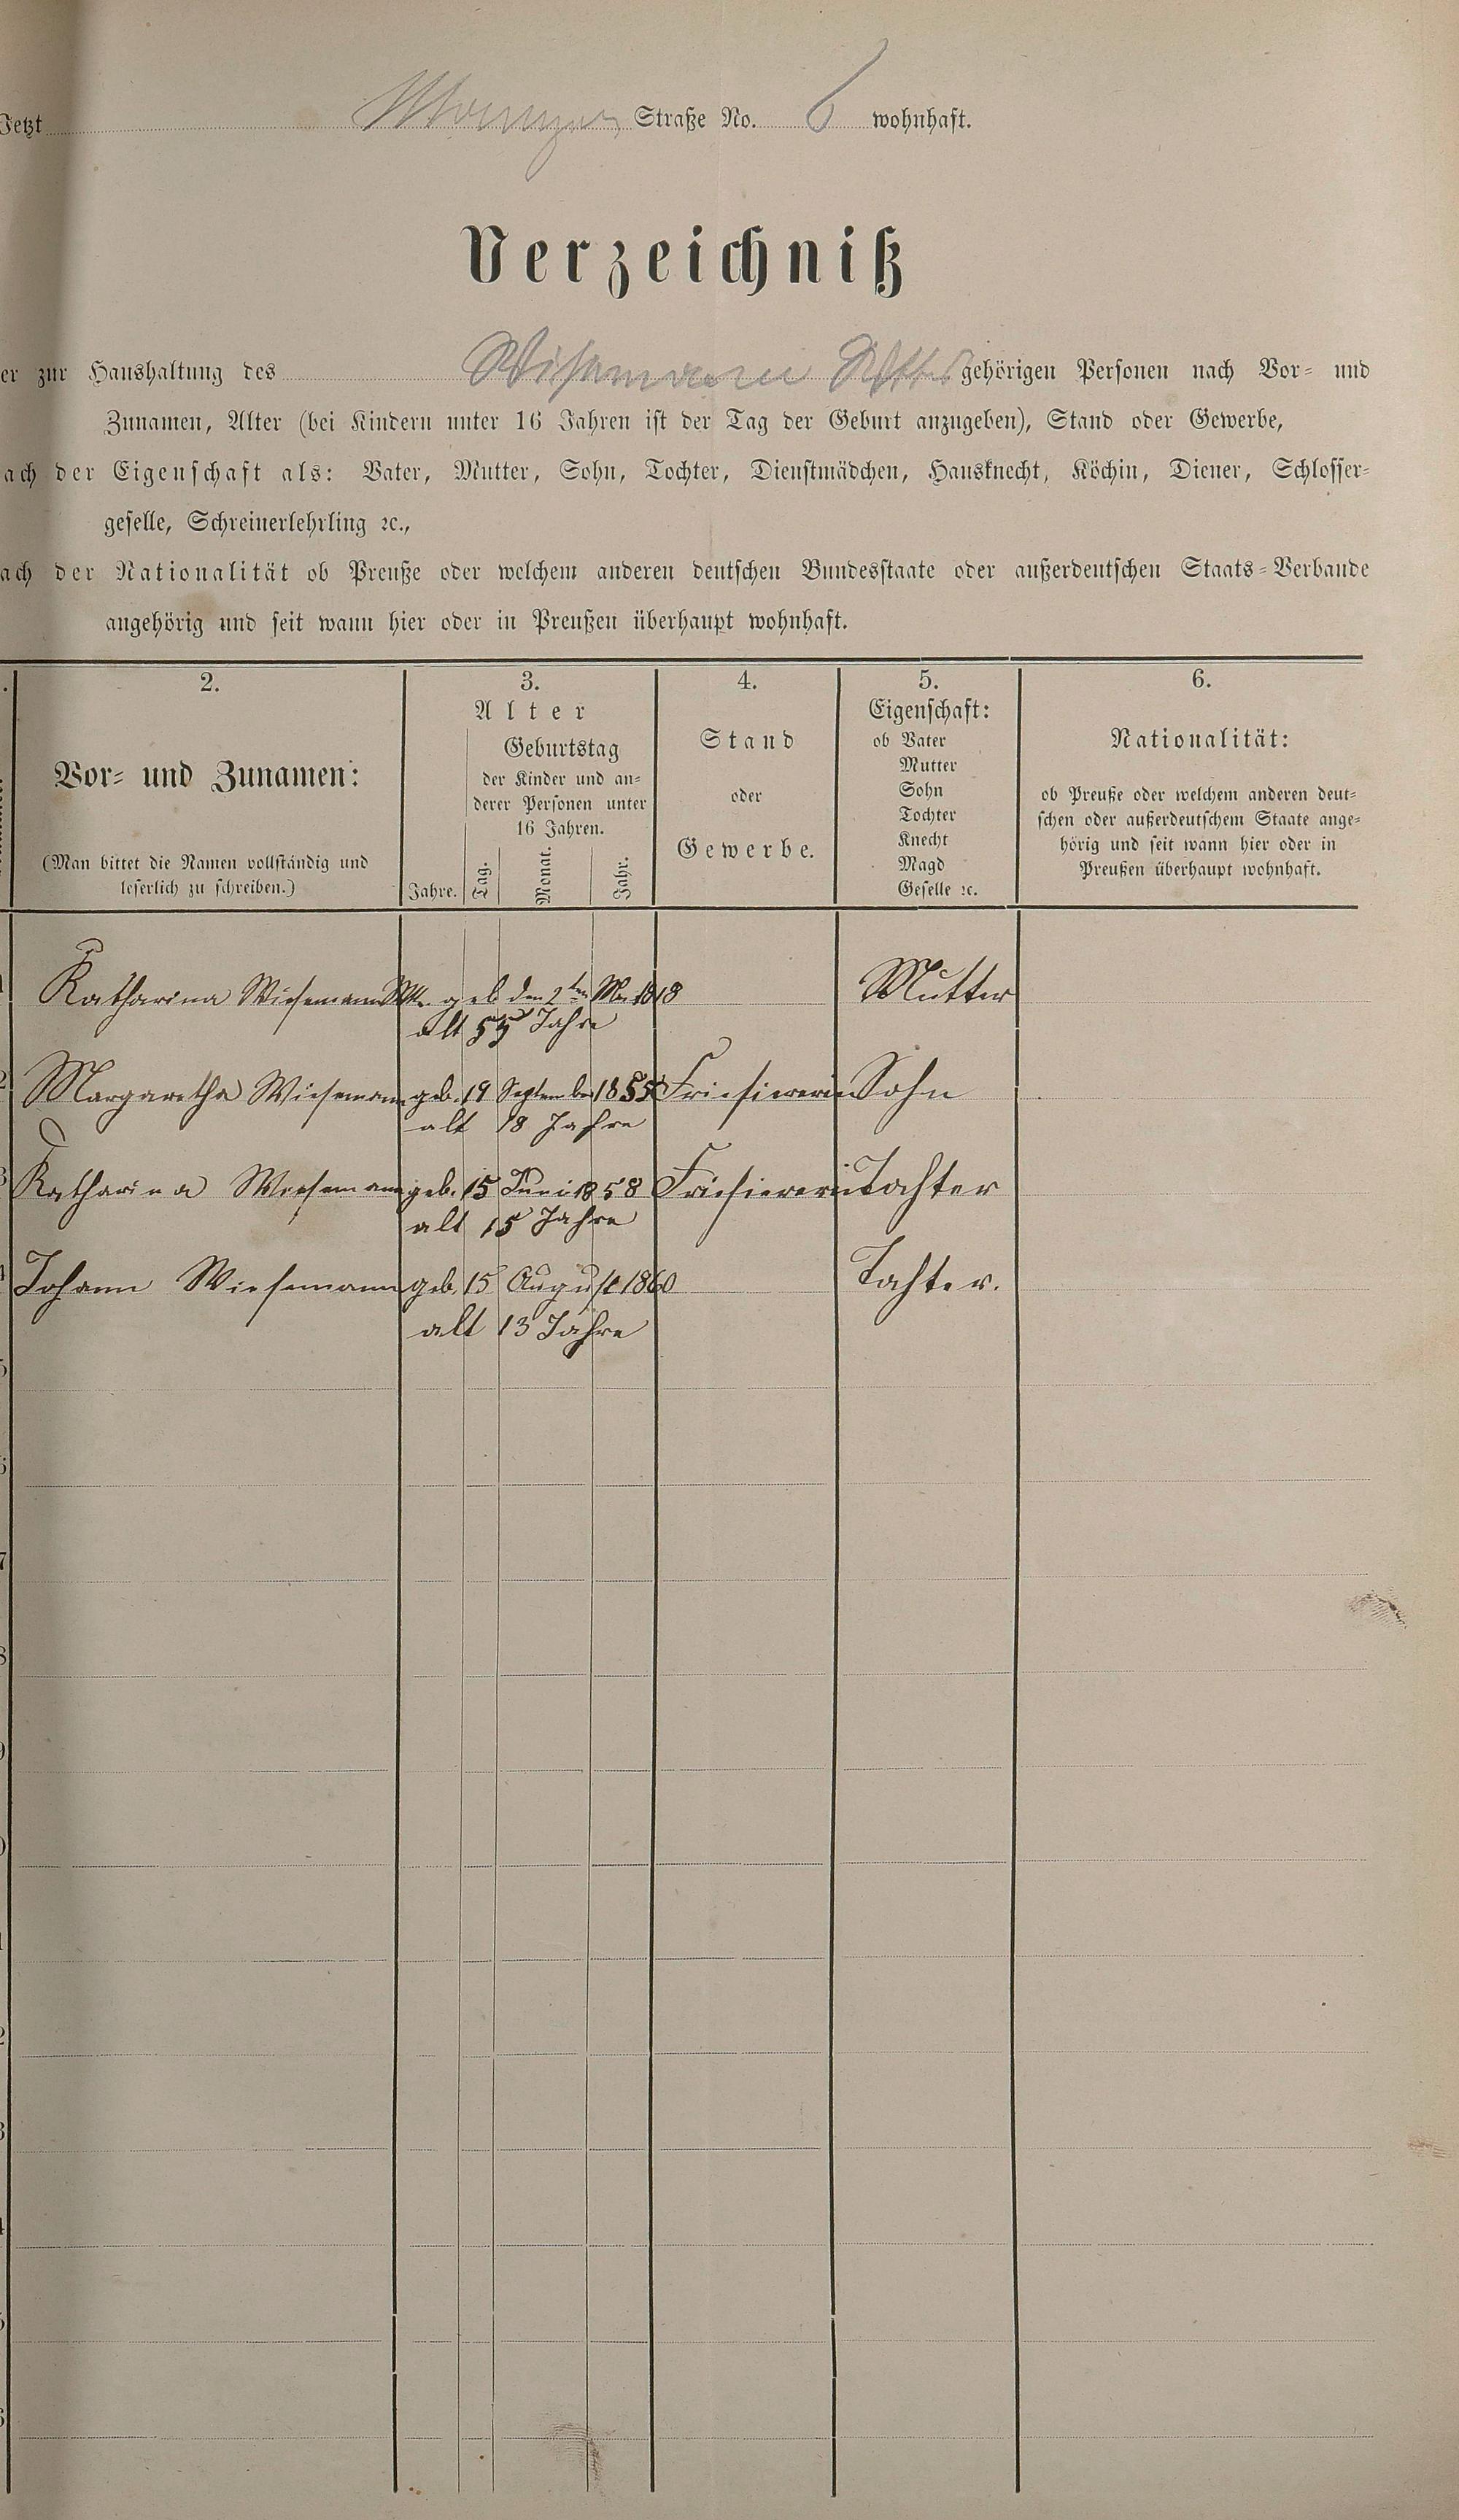 Jetzt Mainzer Straße No. 6 wohnhaft.
Verzeichniß
er zur Haushaltung des Wisemann Wttw gehörigen Personen nach Vor- und
Zunamen, Alter (bei Kindern unter 16 Jahren ist der Tag der Geburt anzugeben), Stand oder Gewerbe,
ach der Eigenschaft als: Vater, Mutter, Sohn, Tochter, Dienstmädchen, Hausknecht, Köchin, Diener, Schlosser-
geselle, Schreinerlehrling ꝛc.,
ach der Nationalität ob Preuße oder welchem anderen deutschen Bundesstaate oder außerdeutschen Staats-Verbande
angehörig und seit wann hier oder in Preußen überhaupt wohnhaft.
2.
Vor- und Zunamen:
(Man bittet die Namen vollständig und
leserlich zu schreiben.)
3.
Alter
Geburtstag
der Kinder und an-
derer Personen unter
16 Jahren.
Jahre. Tag. Monat. Jahr.
4.
Stand
oder
Gewerbe.
5.
Eigenschaft:
ob Vater
Mutter
Sohn
Tochter
Knecht
Magd
Geselle ꝛc.
6.
Nationalität:
ob Preuße oder welchem anderen deut-
schen oder außerdeutschem Staate ange-
hörig und seit wann hier oder in
Preußen überhaupt wohnhaft.
Katharina Wiesemann Wtw. geb den 2ten Mai 1818 Mutter
alt 55 Jahre
2 Margaretha Wiesemann geb. 19 September 1855 Friesiererin Sohn
alt 18 Jahre
3 Katharina Wiesemann geb. 15 Juni 1858 Friesiererin Tochter
alt 15 Jahre
4 Johann Wiesemann geb. 15 August 1860 Tochter.
alt 13 Jahre
5
6
7
8
9
0
1
2
3
4
5
6